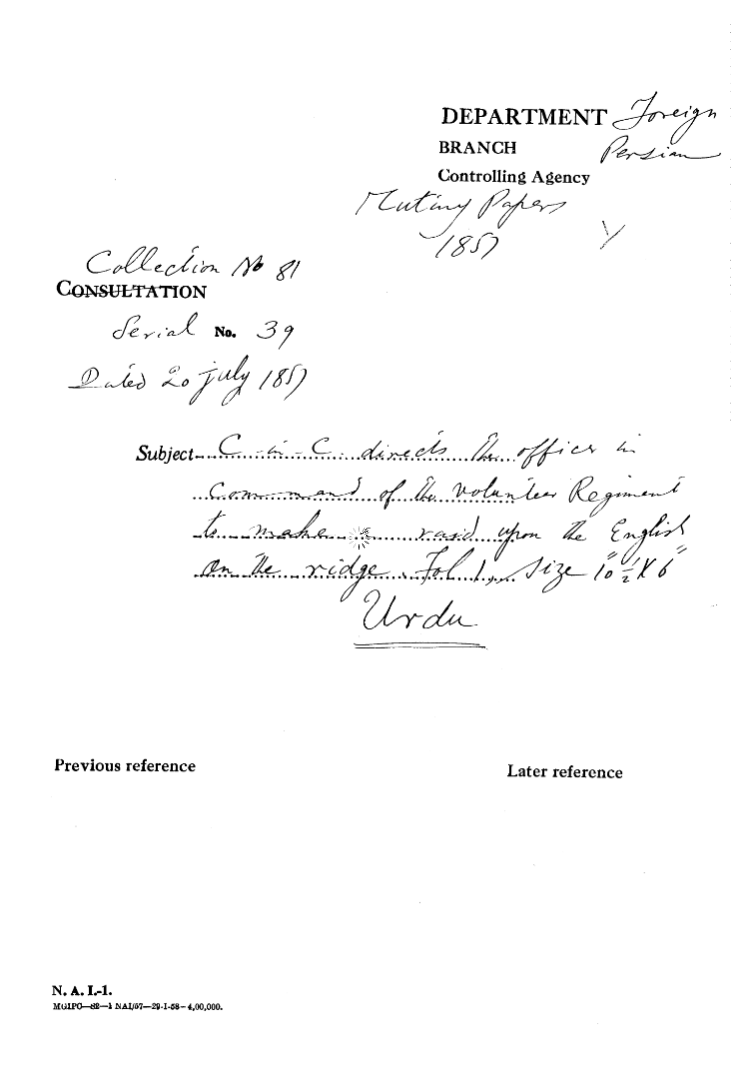 DEPARTMENT Foreign
BRANCH Persian
Controlling Agency
Mutiny Papers
1857
Collection No 81
CONSULTATION
Serial No. 39
Dated 20 July 1857
Subject C-in-C directs the officer in
Command of the Volunteer Regiment
to make a raid upon the English
on the ridge. Fol 1, Size 10"½ X 6"
Urdu
Previous reference
Later reference
N. A. I.-1.
MGIPC—82—1 NAI/57—29-1-58—4,00,000.